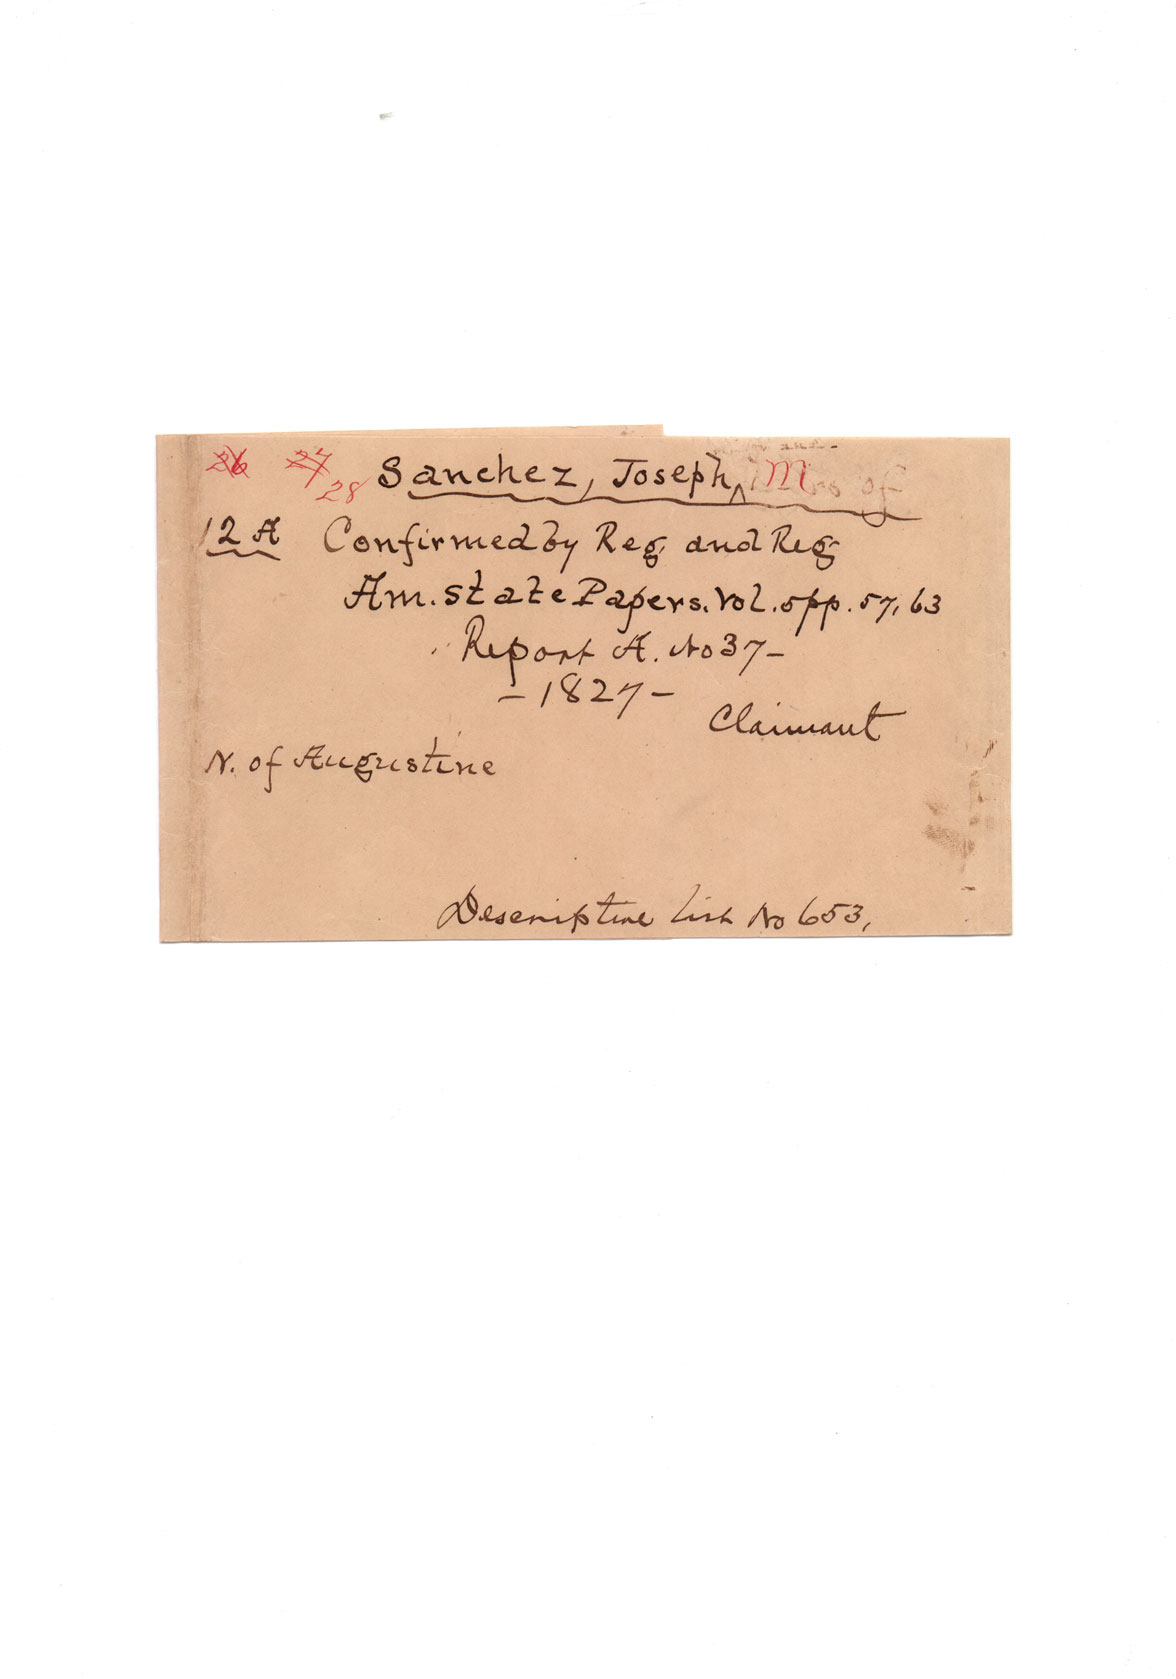 26 27 28 Sanchez, Joseph, M
12 A Confirmed by Reg. and Reg
Am. State Papers. Vol. 5 pp. 57, 63
Report A. No 37-
- 1827 -
Claimant
N. of Augustine
Descriptive list No 653,